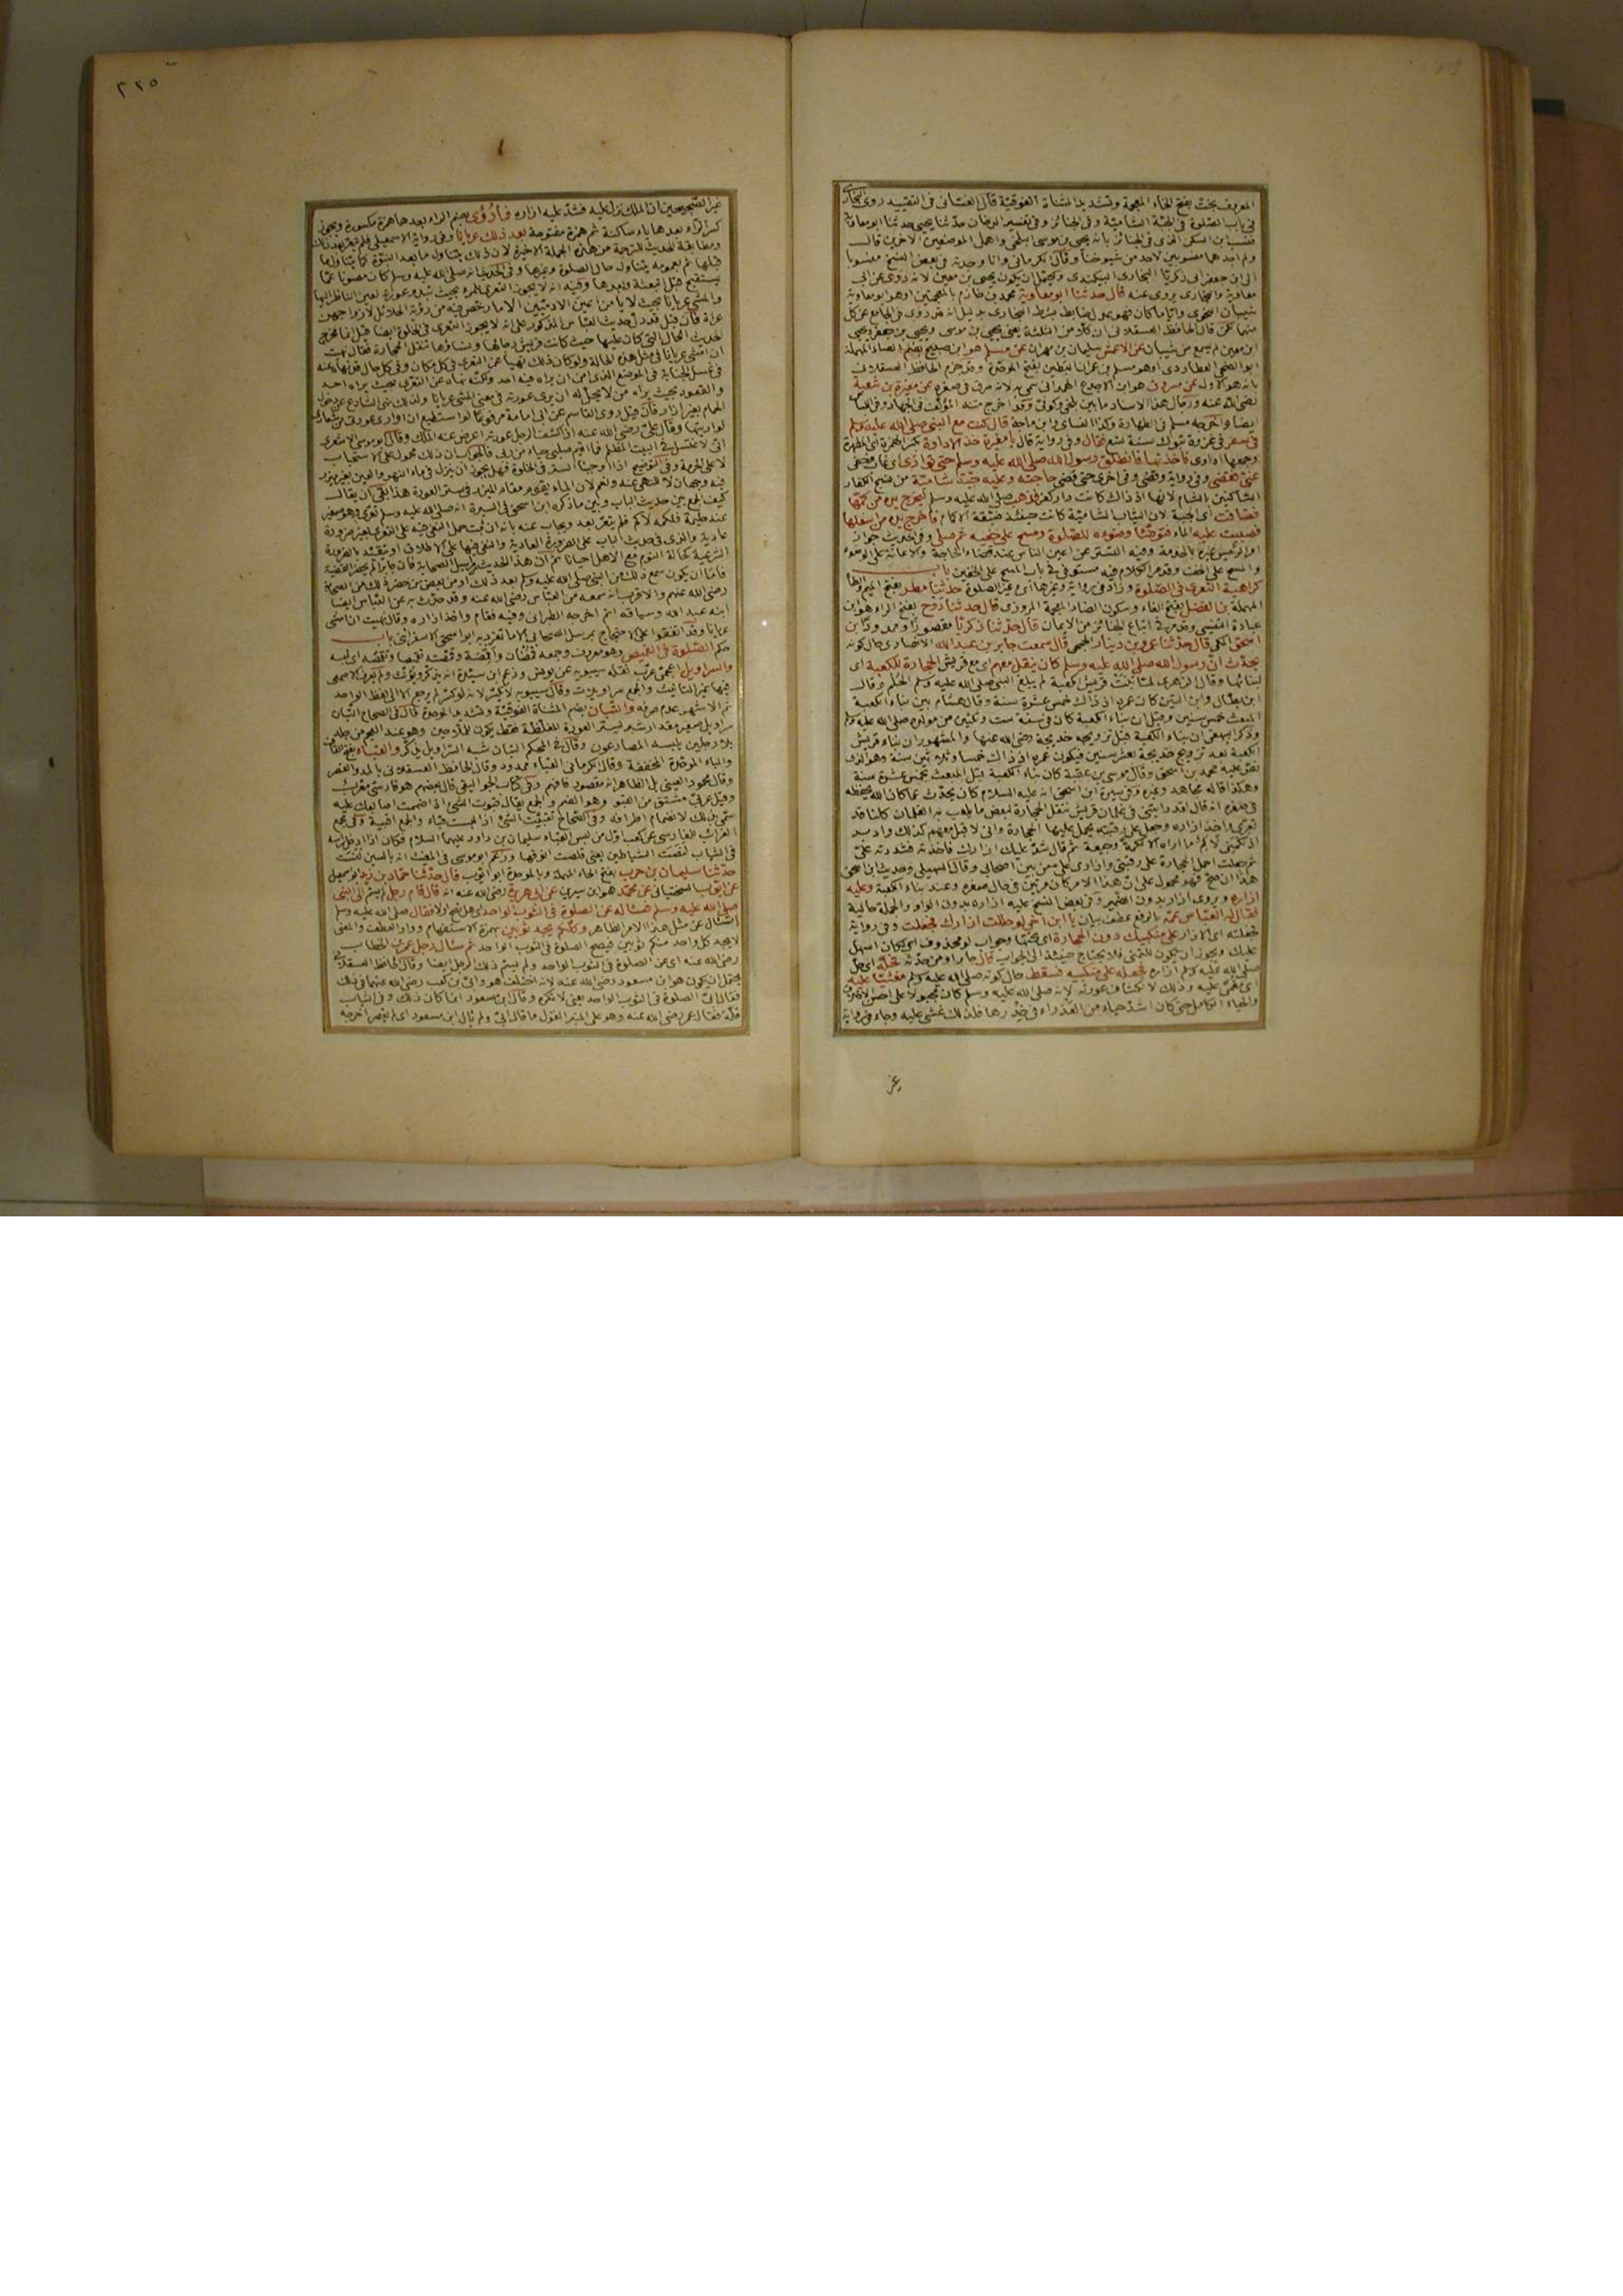 المعروف بخت بفتح الخاء المعجمة وتشديد المثناة الفوقية قال الغساني في التقييد روى البخاري
في باب الصلوة في الجبة الشامية وفي الجنائز وفي تفسير الدخان حدثنا يحيى حدثنا ابو معاوية
فنسب ابن السكن الذي في الجنائز بانه يحيى بن موسى البلخي واهمل الموضعين الاخرين قال
ولم اجدهما منسوبين لاحد من شيوخنا وقال الكرماني وانا وجدته في بعض النسخ منسوبا
الى ابن جعفر ابي زكريا البخاري البيكندي ويحتمل ان يكون يحيى بن معين لانه روى عن ابي
معاوية والبخاري يروي عنه قال حدثنا ابو معاوية محمد بن خازم بالمعجمتين او هو ابو معاوية
شيبان النحوي واياما كان فهو عدل ضابط بشرط البخاري بدليل انه قد روى في الجامع عن كل
منهما لكن قال الحافظ العسقلاني ان كلا من الثلثة يعني يحيى بن موسى ويحيى بن جعفر ويحيى
ابن معين لم يسمع من شيبان عن الاعمش سليمان بن مهران عن مسلم هو ابن صبيح بضم الصاد المهملة
ابو الضحى العطاردي او هو مسلم بن عمران البطين بفتح الموحدة وقد جزم الحافظ العسقلاني
بانه هو الاول عن مسروق هو ابن الاجدع الهمداني سمي به لانه سرق في صغره عن مغيرة بن شعبة
رضي الله عنه ورجال هذا الاسناد ما بين بلخي وكوفي وقد اخرج متنه المؤلف في الجهاد وفي اللباس
ايضا واخرجه مسلم في الطهارة وكذا النسائي وابن ماجة قال كنت مع النبي صلى الله عليه وسلم
في سفر في غزوة تبوك سنة تسع فقال وفي رواية قال يا مغيرة خذ الاداوة بكسر الهمزة اي المطهرة
وجمعها اداوى فاخذتها فانطلق رسول الله صلى الله عليه وسلم حتى توارى اي غاب وخفي
عني فقضى وفي رواية وقضى وفي اخرى حتى قضى حاجته وعليه جبة شامية من نسج الكفار
الساكنين بالشام لانها اذ ذاك كانت دار كفر فذهب صلى الله عليه وسلم ليخرج يده من كمها
فضاقت اي الجبة لان الثياب الشامية كانت حينئذ ضيقة الاكمام فاخرج يده من اسفلها
فصببت عليه الماء فتوضأ وضوءه للصلوة ومسح على خفيه ثم صلى وفي الحديث جواز
امر الرئيس غيره بالخدمة وفيه التستر عن اعين الناس عند قضاء الحاجة والاعانة على الوضوء
والمسح على الخف وقد مر الكلام فيه مستوفى في باب المسح على الخفين باب
كراهية التعري في الصلوة وزاد في رواية وغيرها اي وغير الصلوة حدثنا مطر بفتح الميم والطا
المهملة بن الفضل بفتح الفاء وسكون الضاد المعجمة المروزي قال حدثنا روح بفتح الراء هو ابن
عبادة القيسي وقد مر في اتباع الجنائز من الايمان قال حدثنا زكريا مقصورا وممدودا بن
اسحق المكي قال حدثنا عمرو بن دينار الجمحي قال سمعت جابر بن عبد الله الانصاري حال كونه
يحدث ان رسول الله صلى الله عليه وسلم كان ينقل معهم اي مع قريش الحجارة للكعبة اي
لبنائها وقال الزهري لما بنت قريش كعبة لم يبلغ النبي صلى الله عليه وسلم الحلم وقال
ابن بطال وابن التين كان عمره اذ ذاك خمس عشرة سنة وقال هشام بين بناء الكعبة
المبعث خمس سنين وقيل ان بناء الكعبة كان في سنة ست وثلثين من مولده صلى الله عليه وسلم
وذكر البيهقي ان بناء الكعبة قبل تزويجه خديجة رضي الله عنها والمشهور ان بناء قريش
الكعبة بعد تزويج خديجة بعشر سنين فيكون عمره اذ ذاك خمسا وثلاثين سنة وهو الذي
نص عليه محمد بن اسحق وقال موسى بن عقبة كان بناء الكعبة قبل المبعث بخمس عشرة سنة
وهكذا قاله مجاهد وغيره وفي سيرة ابن اسحق انه عليه السلام كان يحدث عما كان الله يحفظه
في صغره انه قال لقد رايتني في غلمان قريش ننقل الحجارة لبعض ما يلعب به الغلمان كلنا قد
تعرى واخذ ازاره وجعل على رقبته يحمل عليها الحجارة واني لاقبل معهم كذلك وادبر
اذ لكمني لاكم ما اراه الا لكمة وجيعة ثم قال شد عليك ازارك فاخذته فشددته علي
ثم جعلت احمل الحجارة على رقبتي وازاري علي من بين اصحابي وقال السهيلي وحديث ابن اسحق
هذا ان صح فهو محمول على ان هذا الامر كان مرتين في حال صغره وعند بناء الكعبة وعليه
ازاره ويروى ازار بدون الضمير وفي بعض النسخ عليه ازاره بدون الواو والجملة حالية
فقال له العباس عمه بالرفع عطف بيان يا ابن اخي لو حللت ازارك فجعلت وفي رواية
فجعلته اي الازار على منكبيك دون الحجارة اي تحتها وجواب لو محذوف اي لكان اسهل
عليك ويجوز ان يكون للتمني فلا يحتاج حينئذ الى الجواب قال جابر او من حدثه فحله اي حل
صلى الله عليه وسلم ازاره فجعله على منكبيه فسقط حال كونه صلى الله عليه وسلم مغشيا عليه
اي مغمى عليه وذلك لانكشاف عورته لانه صلى الله عليه وسلم كان مجبولا على احسن الاخلاق
والحياء الكامل حتى كان اشد حياء من العذراء في خدرها فلذلك غشي عليه وجاء في رواية
غير
٣٢٥
غير الصحيحين ان الملك نزل عليه فشد عليه ازاره فما رؤي بضم الراء بعدها همزة مكسورة ويجوز
كسر الراء بعدها ياء ساكنة ثم همزة مفتوحة بعد ذلك عريانا وفي رواية الاسمعيلي فلم يتعر بعد ذلك
ومطابقة الحديث للترجمة من هذه الجملة الاخيرة لان ذلك يتناول ما بعد النبوة كما يتناول ما
قبلها ثم بعمومه يتناول حال الصلوة وغيرها وفي الحديث انه صلى الله عليه وسلم كان مصونا عما
يستقبح قبل البعثة وبعدها وفيه انه لا يجوز التعري للمرء بحيث تبدو عورته لعين الناظر اليها
والمشي عريانا بحيث لا يامن اعين الادميين الا ما رخص فيه من رؤية الحلائل لازواجهن
عراة فان قيل فقد دل حديث العباس المذكور على انه لا يجوز التعري في الخلوة ايضا قيل انما مخرج
الحديث الحال التي كان عليها حيث كانت قريش رجالها ونساؤها تنقل الحجارة فقال نهيت
ان امشي عريانا في مثل هذه الحالة ولو كان ذلك نهيا عن التعري في كل مكان وفي كل حال
في غسل الجنابة في الموضع الذي امن ان يراه فيه احد ولكنه نهاه عن التعري بحيث يراه احد
والقعود بحيث يراه من لا يحل له ان يرى عورته في معنى المشي عريانا ولذلك نهى الشارع عن دخول
الحمام بغير ازار فان قيل روى القاسم عن ابي امامة مرفوعا لو استطيع ان اواري عورتي من شعاري
لواريتها وقال علي رضي الله عنه اذا كشف الرجل عورته اعرض عنه الملك وقال ابو موسى الاشعري
اني لاغتسل في البيت المظلم فما اقيم صلبي حياء من ربي فالجواب ان ذلك محمول على الاستحباب
لا على الحرمة وفي التوضيح اذا اوجبنا الستر في الخلوة فهل يجوز ان ينزل في ماء النهر والعين بغير مئزر
فيه وجهان لا للنهي عنه ونعم لان الماء يقوم مقام المئزر في ستر العورة هذا بقي ان يقال
كيف الجمع بين حديث الباب وبين ما ذكره ابن اسحق في السيرة انه صلى الله عليه وسلم تعرى وهو صغير
عند حليمة فلكمه لاكم فلم يتعر بعد ويجاب عنه بانه ان ثبت حمل النفي فيه على التعري بغير ضرورة
عادية والذي في حديث الباب على الضرورة العادية والنفي فيها على الاطلاق او يتقيد بالضرورة
الشرعية كحالة النوم مع الاهل احيانا ثم ان هذا الحديث من مراسيل الصحابة فان جابرا لم يحضر القضية
فاما ان يكون سمع ذلك من النبي صلى الله عليه وسلم بعد ذلك او من بعض من حضر ذلك من الصحابة
رضي الله عنهم والاقرب انه سمعه من العباس رضي الله عنه وقد حدث به عن العباس ايضا
ابنه عبد الله وسياقه اتم اخرجه الطبراني وفيه فقام واخذ ازاره وقال نهيت ان امشي
عريانا وقد اتفقوا على الاحتجاج بمرسل الصحابي الا ما تفرد به ابو اسحق الاسفرائني باب
حكم الصلوة في القميص وهو معروف وجمعه قمصان واقمصة وقمصته تقميصا وتقمصه اي لبسه
والسراويل اعجمي عرب نقله سيبويه عن يونس وزعم ابن سيده انه يذكر ويؤنث ولم يعرف الاصمعي
فيها غير التانيث والجمع سراويلات وقال سيبويه لا يكسر لانه لو كسر لم يرجع الا الى لفظ الواحد
ثم الاشهر عدم صرفه والتبان بضم المثناة الفوقية وتشديد الموحدة قال في الصحاح التبان
سراويل صغير مقدار شبر يستر العورة المغلظة فقط يكون للملاحين وهو عند العجم من جلد
بلا رجلين يلبسه المصارعون وقال في المحكم التبان شبه السراويل يذكر والقباء بفتح القاف
والباء الموحدة المخففة وقال الكرماني القباء ممدود وقال الحافظ العسقلاني بالمد والقصر
وقال محمود العيني بل الظاهر انه مقصور فافهم وفي كتاب الجواليقي قال بعضهم هو فارسي معرب
وقيل عربي مشتق من القبو وهو الضم والجمع يقال قبوت الشيء اذا ضممت اصابعك عليه
سمي بذلك لانضمام اطرافه وفي الصحاح تقبيت الشيء اذا لبست قباء والجمع اقبية وفي مجمع
الغرائب للفارسي عن كعب اول من لبس القباء سليمان بن داود عليهما السلام فكان اذا ادخل راسه
في الثياب لنصت الشياطين يعني قلصت انوفها وزعم ابو موسى في المغيث انه بالسين لنست
حدثنا سليمان بن حرب بفتح الحاء المهملة وبالموحدة ابو ايوب قال حدثنا حماد بن زيد ابو اسمعيل
عن ايوب السختياني عن محمد هو ابن سيرين عن ابي هريرة رضي الله عنه انه قال قام رجل لم يسم الى النبي
صلى الله عليه وسلم فساله عن الصلوة في الثوب الواحد اي هل تصح او لا فقال صلى الله عليه وسلم
السائل عن مثل هذا الامر الظاهر وكلكم يجد ثوبين بهمزة الاستفهام وواو العطف والمعنى
لا يجد كل واحد منكم ثوبين فيصح الصلوة في الثوب الواحد ثم سال رجل عمر بن الخطاب
رضي الله عنه اي عن الصلوة في الثوب الواحد ولم يسم ذلك الرجل ايضا وقال الحافظ العسقلاني
يحتمل ان يكون هو ابن مسعود رضي الله عنه لانه اختلف هو وابي بن كعب رضي الله عنهما في ذلك
فقال ابي الصلوة في الثوب الواحد يعني لا تكره وقال ابن مسعود انما كان ذلك وفي الثياب
قلة فقال عمر رضي الله عنه وهو على المنبر القول ما قال ابي ولم يال ابن مسعود اي لم يقصر اخرجه